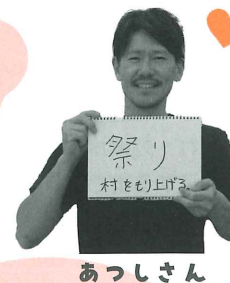 祭り
村をもり上げる。
あつしさん